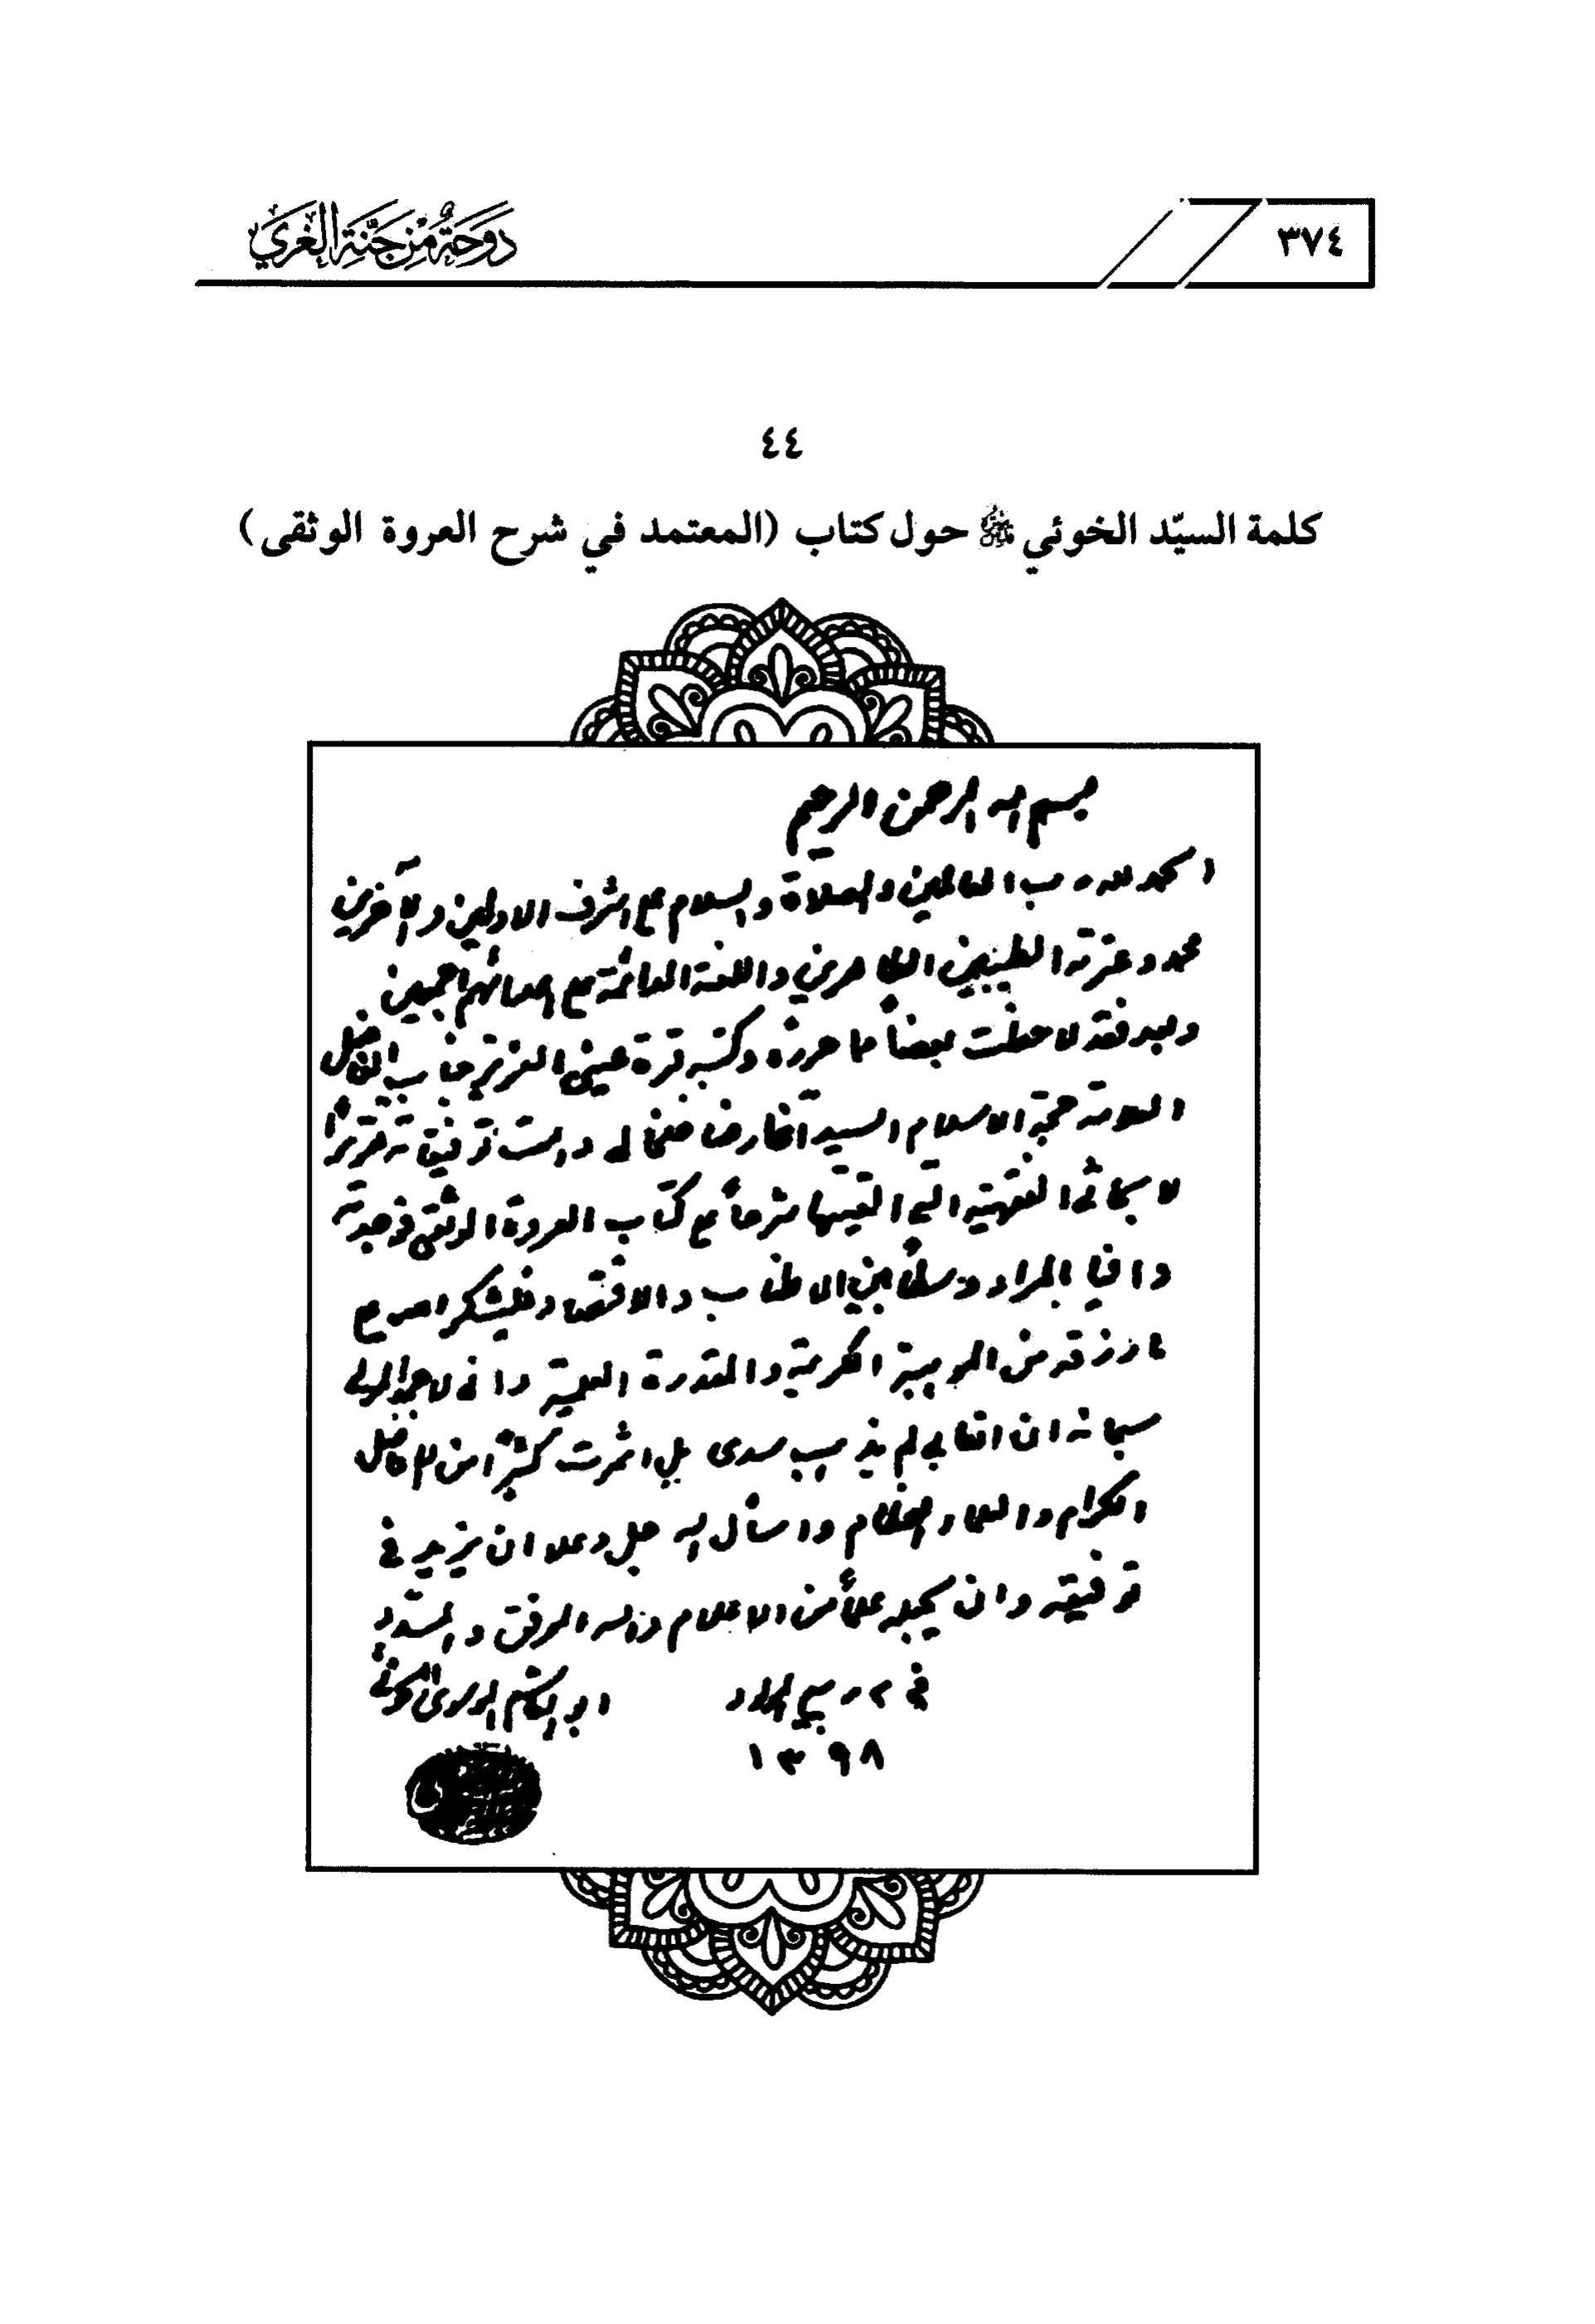 ٣٧٤
دوحة من جنة الغري
٤٤
كلمة السيّد الخوئي حول كتاب (المعتمد في شرح العروة الوثقى)
بسم الله الرحمن الرحيم
الحمد لله رب العالمين والصلاة والسلام على اشرف الاولين والآخرين
محمد وعترته الطيبين الطاهرين واللعنة الدائمة على اعدائهم اجمعين
وبعد فقد لاحظت بعضاً مما حرره وكتبه قرة عيني العزيز جناب الفاضل
العلامة حجة الاسلام السيد آقا رضا خلخالي دامت توفيقاته تقريراً
لابحاثي الفقهية التي القيتها شرحاً على كتاب العروة الوثقى فوجدته
وافياً بالمراد وسطاً بين الاطناب والاقتصار فليشكر الله على
ما رزقه من الموهبة الكريمة والمقدرة العلمية واني لاحمد الباري
سبحانه ان اتعابي لم يذهب سدى بل اثمرت كثيراً من الافاضل
الكرام والعلماء العظام واسأل الله جل وعلا ان يزيد في
توفيقه وان يجعله علماً من الاعلام والله الموفق والمسدد
في ٢ ربيع المولود
ابو القاسم الموسوي الخوئي
١٣٩٨